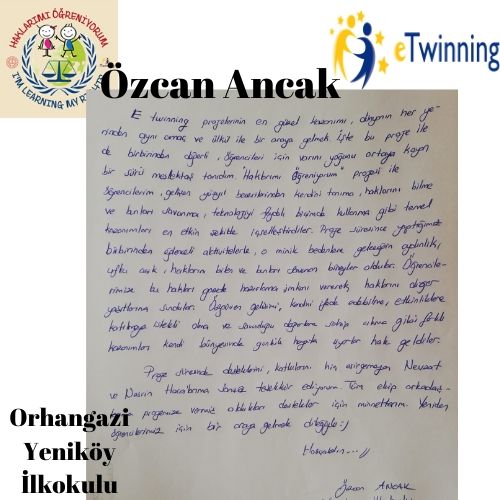 HAKLARIMI ÖĞRENİYORUM
I'M LEARNING MY
eTwinning
Özcan Ancak
E twinning projelerinin en güzel kazanımı, dünyanın her ye-
rinden aynı amaç ve ülkü ile bir araya gelmek. İşte bu proje ile
de birbirinden değerli, öğrencileri için varını yoğunu ortaya koyan
bir sürü meslektaş tanıdım. "Haklarımı Öğreniyorum" projesi ile
öğrencilerim, gelişen yüzyıl becerilerinden kendini tanıma, haklarını bilme
ve bunları savunma, teknolojiyi faydalı biçimde kullanma gibi temel
kazanımları en etkin şekilde içselleştirdiler. Proje süresince yaptığımız
birbirinden eğlenceli aktivitelerle, o minik bedenlere geleceğin aydınlık,
ufku açık, haklarını bilen ve bunları savunan bireyler oldular. Öğrencile-
rimize bu hakları hazırlama imkanı vererek, haklarını diğer
yaşıtlarına sundular. Özgüven gelişimi, kendini ifade edebilme, etkinliklere
katılmaya istekli olma ve savunduğu değerlere sahip çıkma gibi farklı
kazanımları kendi bünyesinde günlük hayata uyarlar hale geldiler.
Proje süresince desteklerini, katkılarını hiç esirgemeyen Nevzart
ve Nasrin sonsuz teşekkür ediyorum. Tüm ekip arkadaş-
projemize vermiş oldukları destekler için minnettarım. Yeniden
öğrencilerimiz için bir araya gelmek dileğiyle :)
Hoşçakalın...
Özcan ANCAK
Orhangazi
Yeniköy
İlkokulu